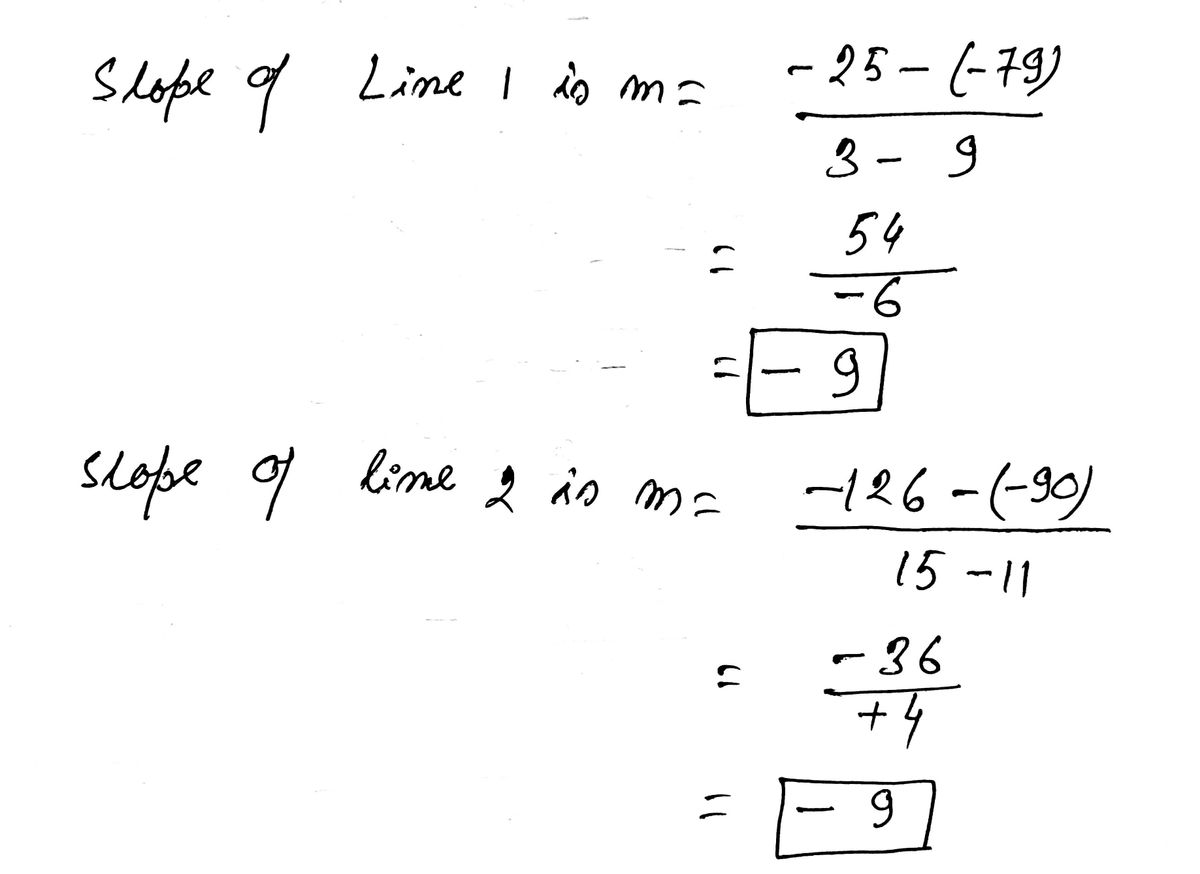 Slope of Line 1 is m = -25-(-79)
3 - 9
= 54
-6
= - 9
Slope of line 2 is m = -126-(-90)
15-11
= -36
+4
= - 9